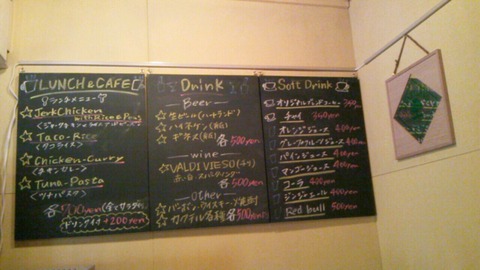 LUNCH & CAFE
ランチメニュー
☆ Jerk Chicken
with Rice & Peas
☆ Taco-Rice
<タコライス>
☆ Chicken-Curry
<チキンカレー>
☆ Tuna-Pasta
<ツナパスタ>
各700yen
ドリンク付 +200yen
Drink
Beer
☆ 生ビール(ハートランド)
☆ ハイネケン(瓶)
☆ ギネス(瓶)
各500yen
wine
☆ VALDIVIESO(チリ)
赤・白・スパークリング
各500yen
Other
☆ バーボン・ウイスキー・焼酎
☆ カクテル各種 各500yen
Soft Drink
350yen
350yen
オレンジジュース 400yen
グレープフルーツジュース 400yen
パインジュース 400yen
マンゴージュース 400yen
コーラ 400yen
ジンジャエール 400yen
Red bull 500yen